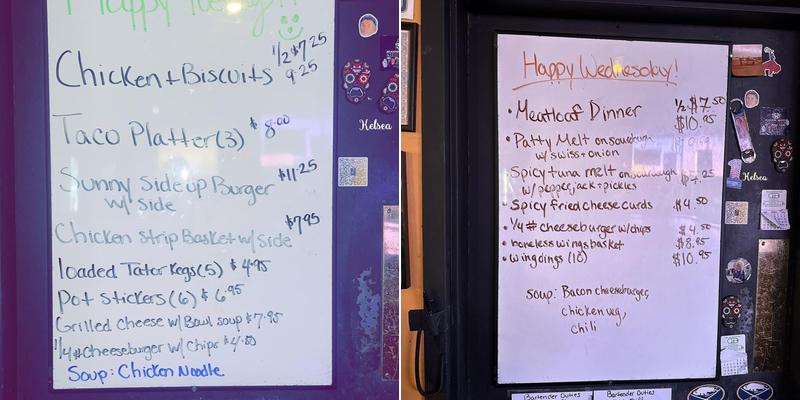 Happy Tuesday!!
1/2 $7.25
Chicken + Biscuits 9.25
Taco Platter (3) $8.00
Sunny Side up Burger $11.25
w/ side
Chicken Strip Basket w/ side $7.95
loaded Tator Kegs (5) $4.95
Pot Stickers (6) $6.95
Grilled Cheese w/ Bowl soup $7.95
1/4# Cheeseburger w/ Chips $4.50
Soup: Chicken Noodle
Kelsea
Happy Wednesday!
• Meatloaf Dinner 1/2 $7.50
$10.95
• Patty Melt on sourdough
w/ swiss + onion
Spicy tuna melt on sourdough
w/ pepperjack + pickles
• Spicy fried cheese curds $4.50
• 1/4# cheeseburger w/chips $4.50
• boneless wings basket $8.95
• wing dings (10) $10.95
Soup: Bacon cheeseburger,
chicken veg,
chili
Kelsea
Bartender Duties
Bartender Duties